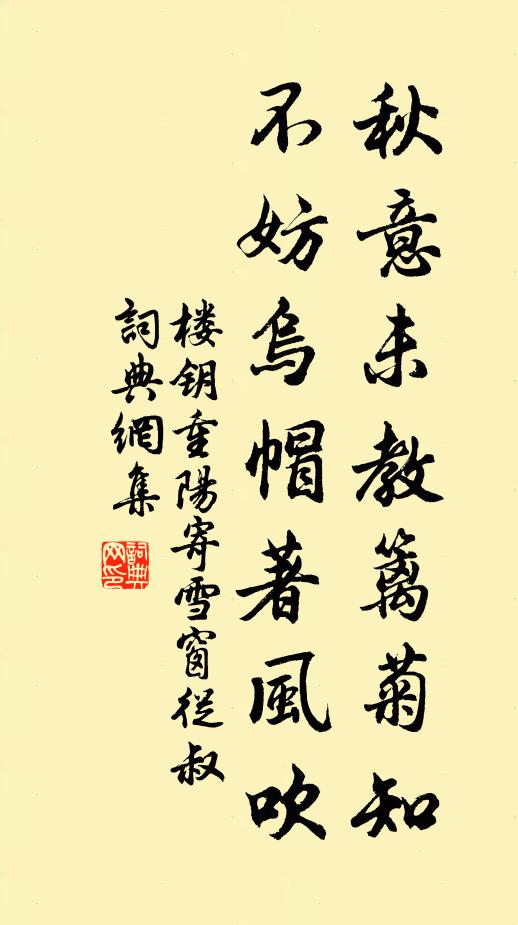 秋意未教籬菊知
不妨烏帽著風吹
楼钥重陽寄雪窗從叔
詞典網集
詞典网印